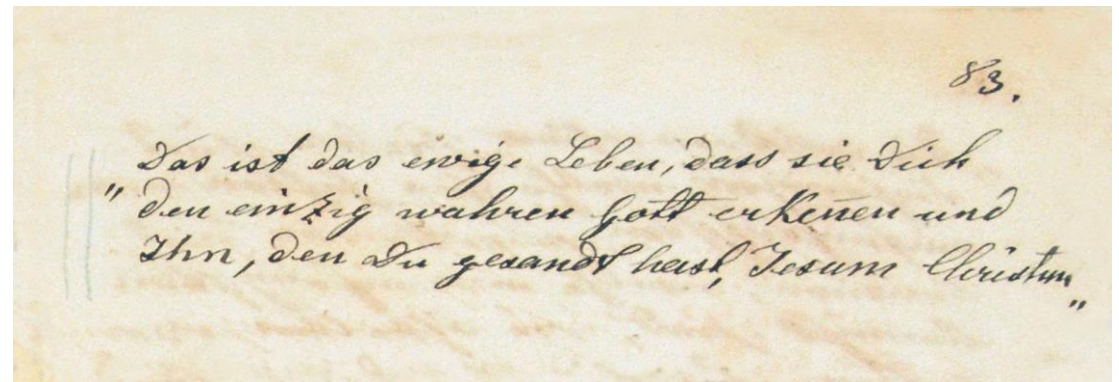 83.
Das ist das ewige Leben, dass sie Dich
„ den einzig wahren Gott erkeñen und
Ihn, den Du gesandt hast, Jesum Christum „